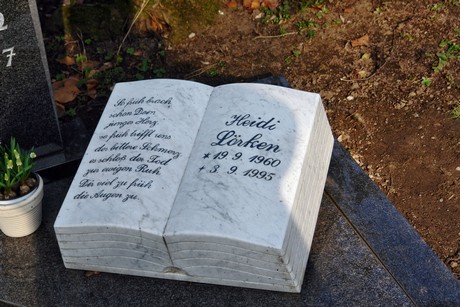 So früh brach
schon Dein
junges Herz
so früh trifft uns
der bittere Schmerz
es schloß der Tod
zu ewigen Ruh
Dir viel zu früh
die Augen zu.
Heidi
Lörken
* 19.9.1960
+ 3.9.1995
7